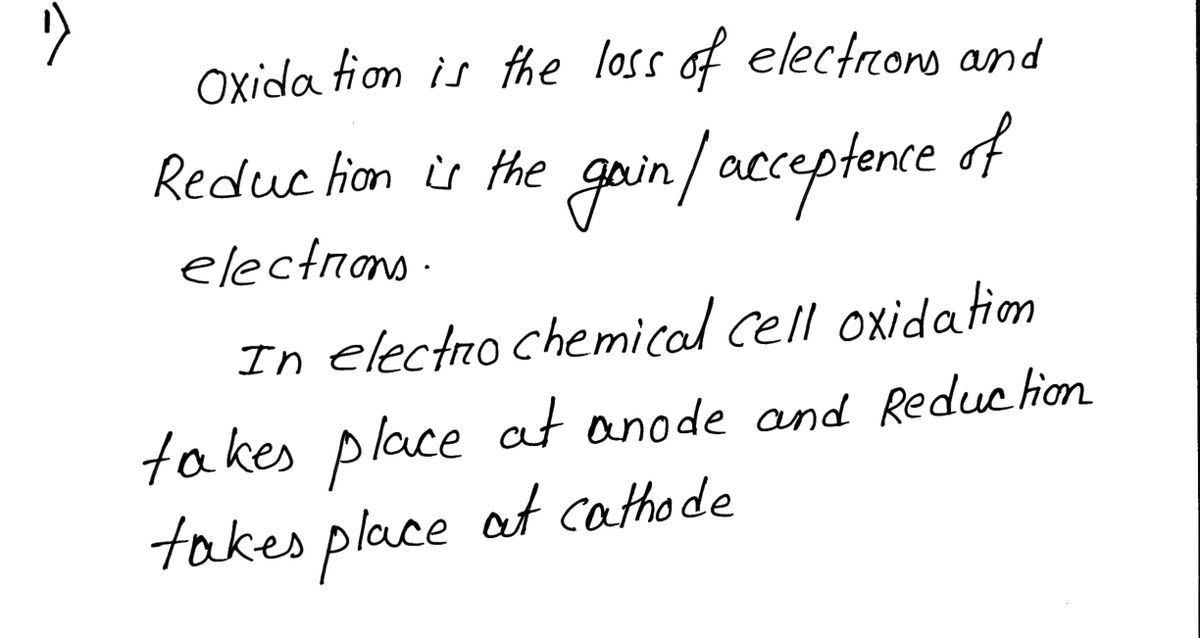 1)
Oxidation is the loss of electrons and
Reduction is the gain/acceptence of
electrons.
In electrochemical cell oxidation
takes place at anode and Reduction
takes place at cathode